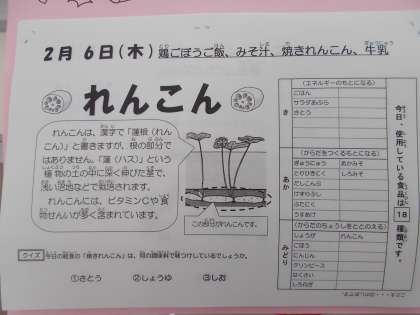 2月 6日(木) 鶏ごぼうご飯、みそ汁、焼きれんこん、牛乳
れんこん
れんこんは、漢字で「蓮根(れん
こん)」と書きますが、根の部分で
はありません。「蓮(ハス)」という
植物の土の中に深く伸びた茎で、
浅い沼地などで栽培されます。
れんこんには、ビタミンCや食
物せんいが多く含まれています。
この部分がれんこんです。
クイズ 今日の給食の「焼きれんこん」は、何の調味料で味つけしているでしょうか。
①さとう ②しょうゆ ③しお
今日、使用している食品は 18 種類です。
き
(エネルギーのもとになる)
ごはん
サラダあぶら
さとう
あか
(からだをつくるもとになる)
ぎゅうにゅう あかみそ
とりひきにく しろみそ
だしこんぶ
けずりぶし
ぶたにく
うすあげ
みどり
(からだのちょうしをととのえる)
しょうが れんこん
ごぼう
にんじん
グリンピース
はくさい
しろねぎ